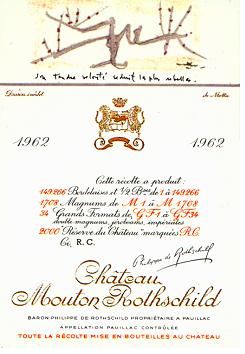 sa tendre volonté séduit la plus rebelle.
Dessin inédit de Matta
1962 1962
Cette récolte a produit:
149.266 Bordelaises et ½ Bses de 1 à 149.266
1708 Magnums de M 1 à M 1708
34 Grands Formats de GF1 à GF34
double magnums, jéroboams, impériales
2000 "Réserve du Château" marquées R.C.
Ce, R.C.
Philippe de Rothschild
Château
Mouton Rothschild
BARON PHILIPPE DE ROTHSCHILD PROPRIÉTAIRE A PAUILLAC
APPELLATION PAUILLAC CONTRÔLÉE
TOUTE LA RÉCOLTE MISE EN BOUTEILLES AU CHATEAU